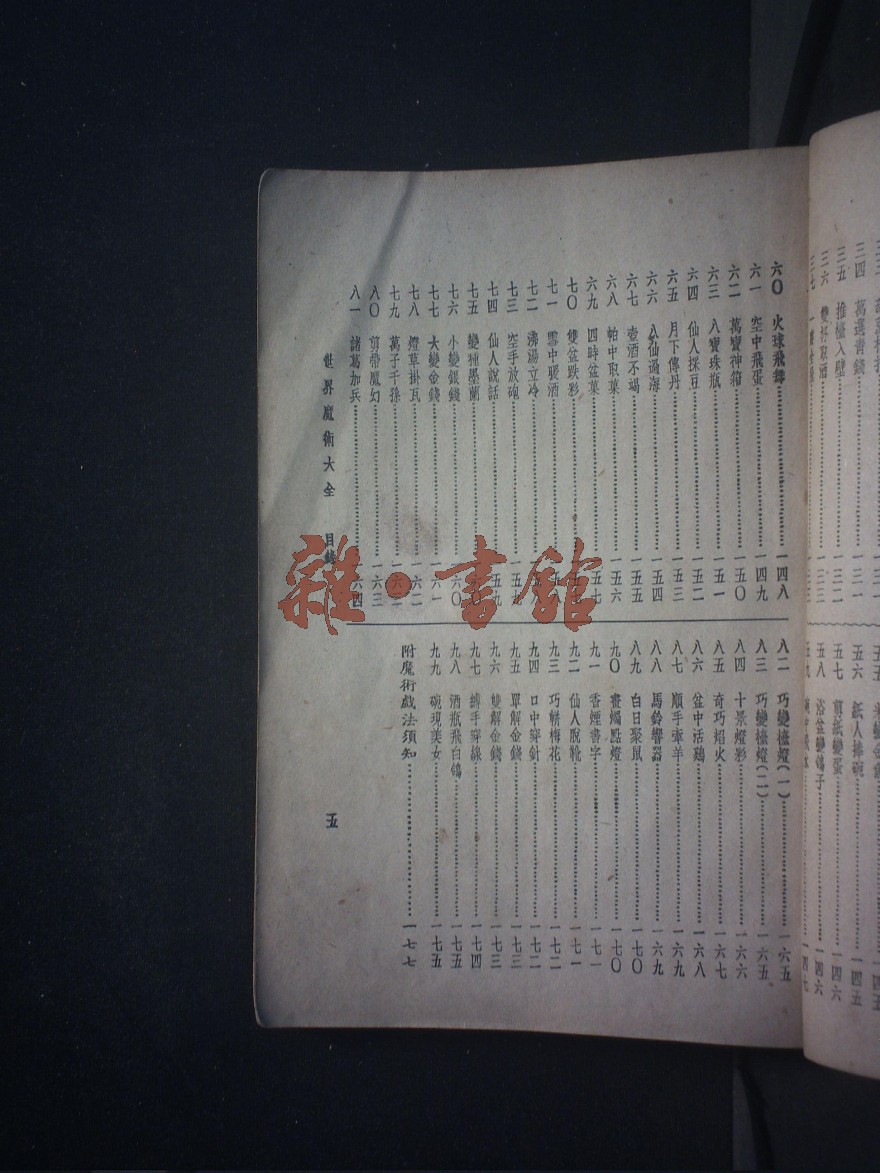 六〇 火球飛舞 一四八
六一 空中飛蛋 一四九
六二 萬寶神箱 一五〇
六三 八寶珠瓶 一五一
六四 仙人採豆 一五二
六五 月下傳丹 一五三
六六 八仙過海 一五四
六七 壺酒不竭 一五五
六八 帕中取菓 一五六
六九 四時盆菓 一五七
七〇 雙盆跌彩
七一 雪中暖酒
七二 沸湯立冷
七三 空手放砲 一五九
七四 仙人說話 一五九
七五 變種墨蘭
七六 小變銀錢 一六〇
七七 大變金錢 一六一
七八 燈草掛瓦 一六二
七九 萬子千孫
八〇 剪帶魔幻 一六三
八一 諸葛加兵 一六四
世界魔術大全 目錄
八二 巧變檯燈(一) 一六五
八三 巧變檯燈(二) 一六五
八四 十景燈彩 一六六
八五 奇巧焰火 一六七
八六 盆中活鷄 一六八
八七 順手牽羊 一六九
八八 馬鈴響器 一六九
八九 白日聚鼠 一七〇
九〇 畫燭點燈 一七〇
九一 香煙書字 一七一
九二 仙人脫靴 一七一
九三 巧騈梅花 一七二
九四 口中穿針 一七二
九五 單解金錢 一七三
九六 雙解金錢 一七三
九七 縛手穿線 一七四
九八 酒瓶飛白鴿 一七五
九九 碗現美女 一七五
附魔術戲法須知 一七七
五
三四 萬選青錢 一三一
三五 推檯入壁 一三二
三六 雙杯取酒 一三三
五六 紙人捧碗 一四五
五七 剪紙變蛋 一四六
五八 浴盆變鴿子 一四六
雜·書館